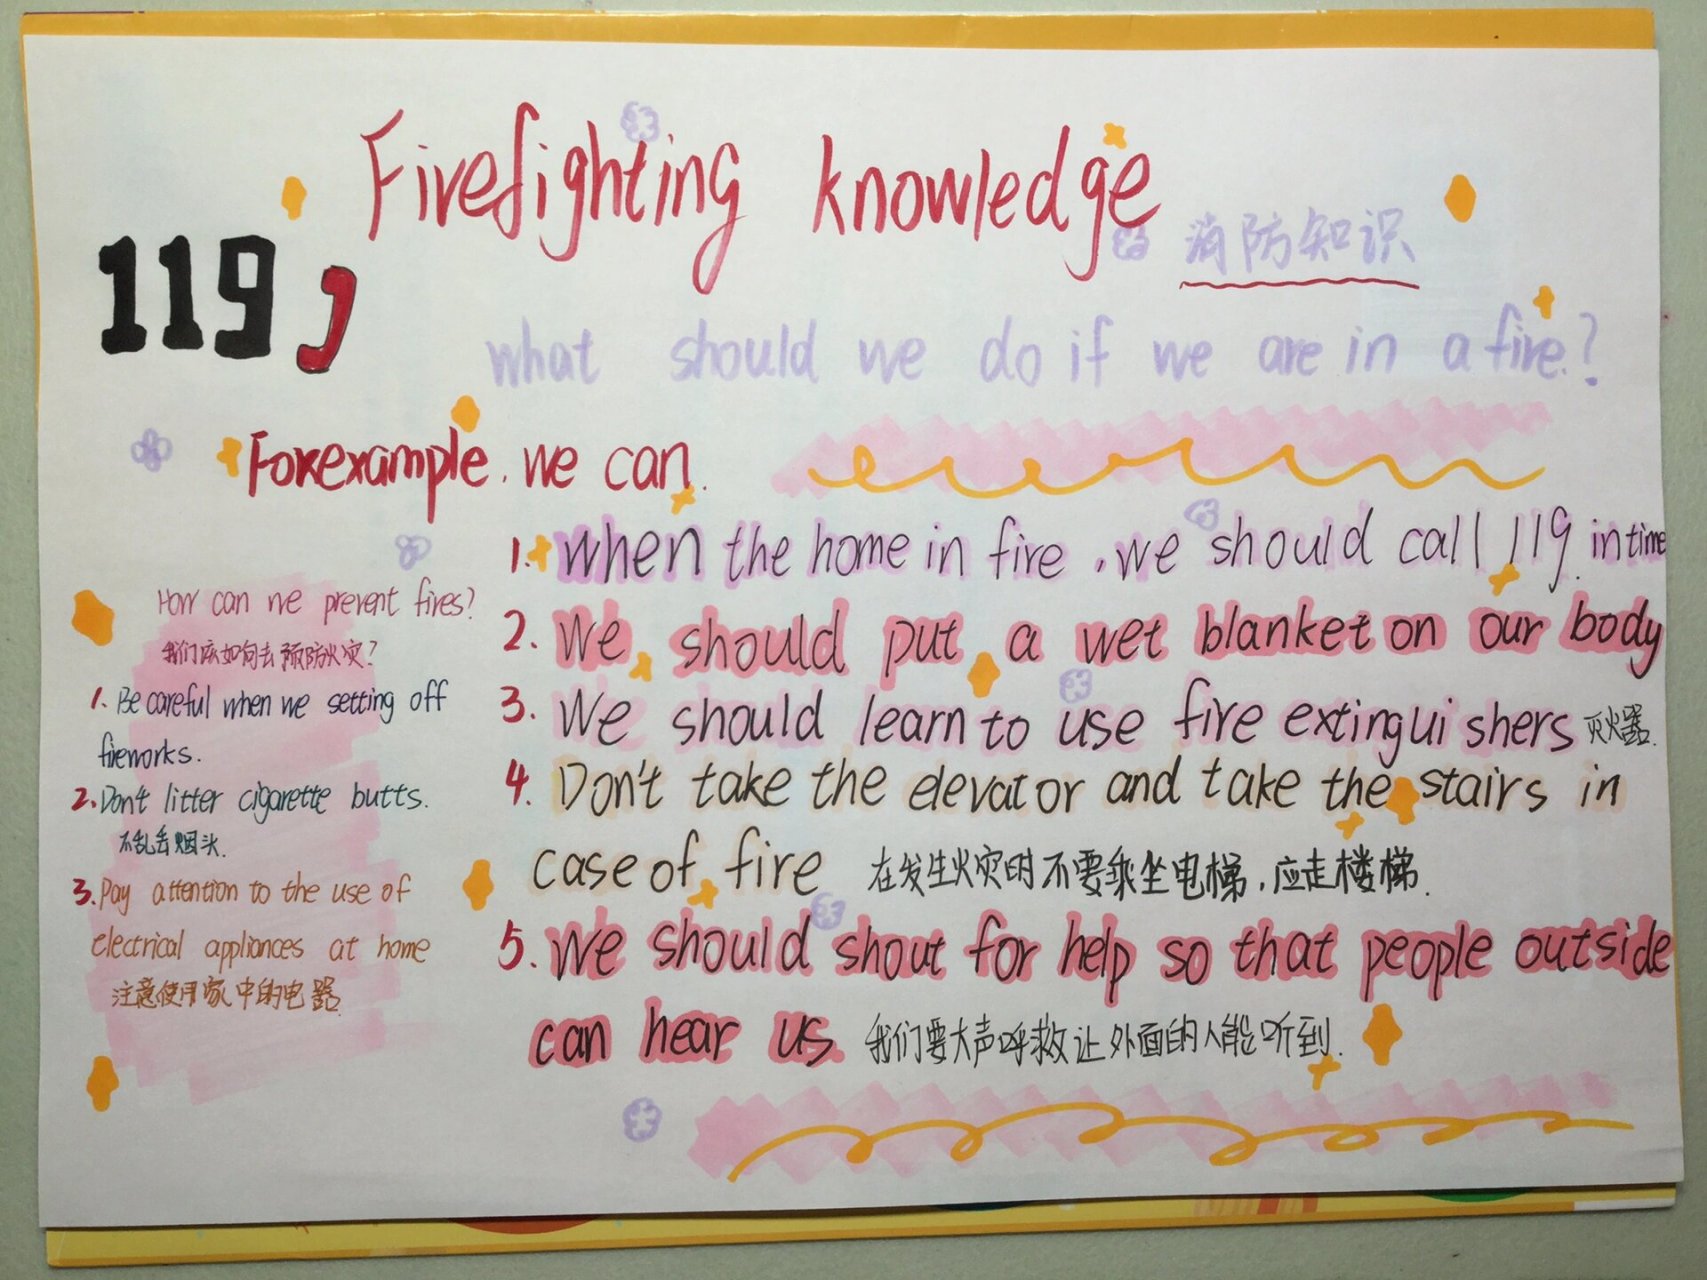 Firefighting knowledge
消防知识
119
what should we do if we are in a fire?
For example, we can.
1. when the home in fire, we should call 119 in time
2. We should put a wet blanket on our body
3. We should learn to use fire extinguishers 灭火器.
4. Don't take the elevator and take the stairs in
case of fire 在发生火灾时不要乘坐电梯,应走楼梯.
5. We should shout for help so that people outside
can hear us. 我们要大声呼救让外面的人能听到.
How can we prevent fires?
我们应如何去预防火灾?
1. Be careful when we setting off
fireworks.
2. Don't litter cigarette butts.
不乱丢烟头.
3. Pay attention to the use of
electrical appliances at home
注意使用家中的电器.